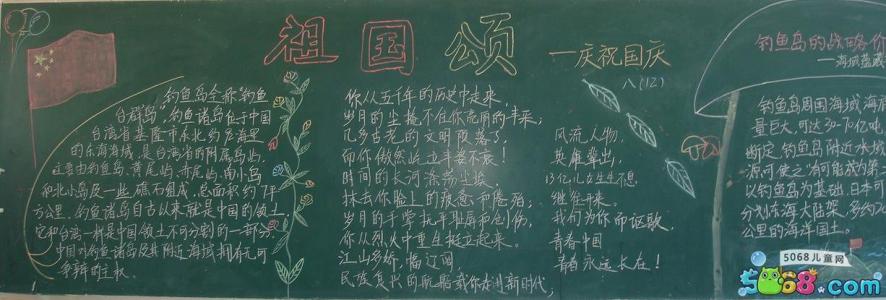 祖国颂
一庆祝国庆
八(12)
钓鱼岛全称"钓鱼
台群岛",钓鱼诸岛位于中国
台湾省基隆市东北约
海里
的东海海域,是台湾省的附属岛屿,
主要由钓鱼岛、黄尾屿、赤尾屿、南小岛
和北小岛及一些礁石组成,总面积约7平
方公里。钓鱼诸岛自古以来就是中国的领土,
它和台湾一样是中国领土不可分割的一部分
中国对钓鱼诸岛及其附近海域拥有无可
争辩的主权。
你从五千年的历史中走来,
岁月的尘掩不住你亮丽的丰采;
几多古老的文明陨落了,
而你傲然屹立丰姿不衰!
时间的长河涤荡尘埃,
抹去你脸上的疲惫和倦怠;
岁月的手掌抚平肚肩和创伤,
你从烈火中重生挺立起来。
江山多娇,临江阔
民族复兴的航船载你走进新时代;
风流人物,
英雄辈出,
13亿儿女生生不息,
继往开来。
我们为你而讴歌,
青春中国
青春永远长在!
钓鱼岛的战略价
一海域蕴藏
钓鱼岛周围海域海
量巨大,可达30-70亿吨
断定,钓鱼岛附近水域
源,可使之有可能成为第二
以钓鱼岛为基础,日本可
分划东海大陆架,多约20
公里的海洋国土。
5068儿童网
5068.com